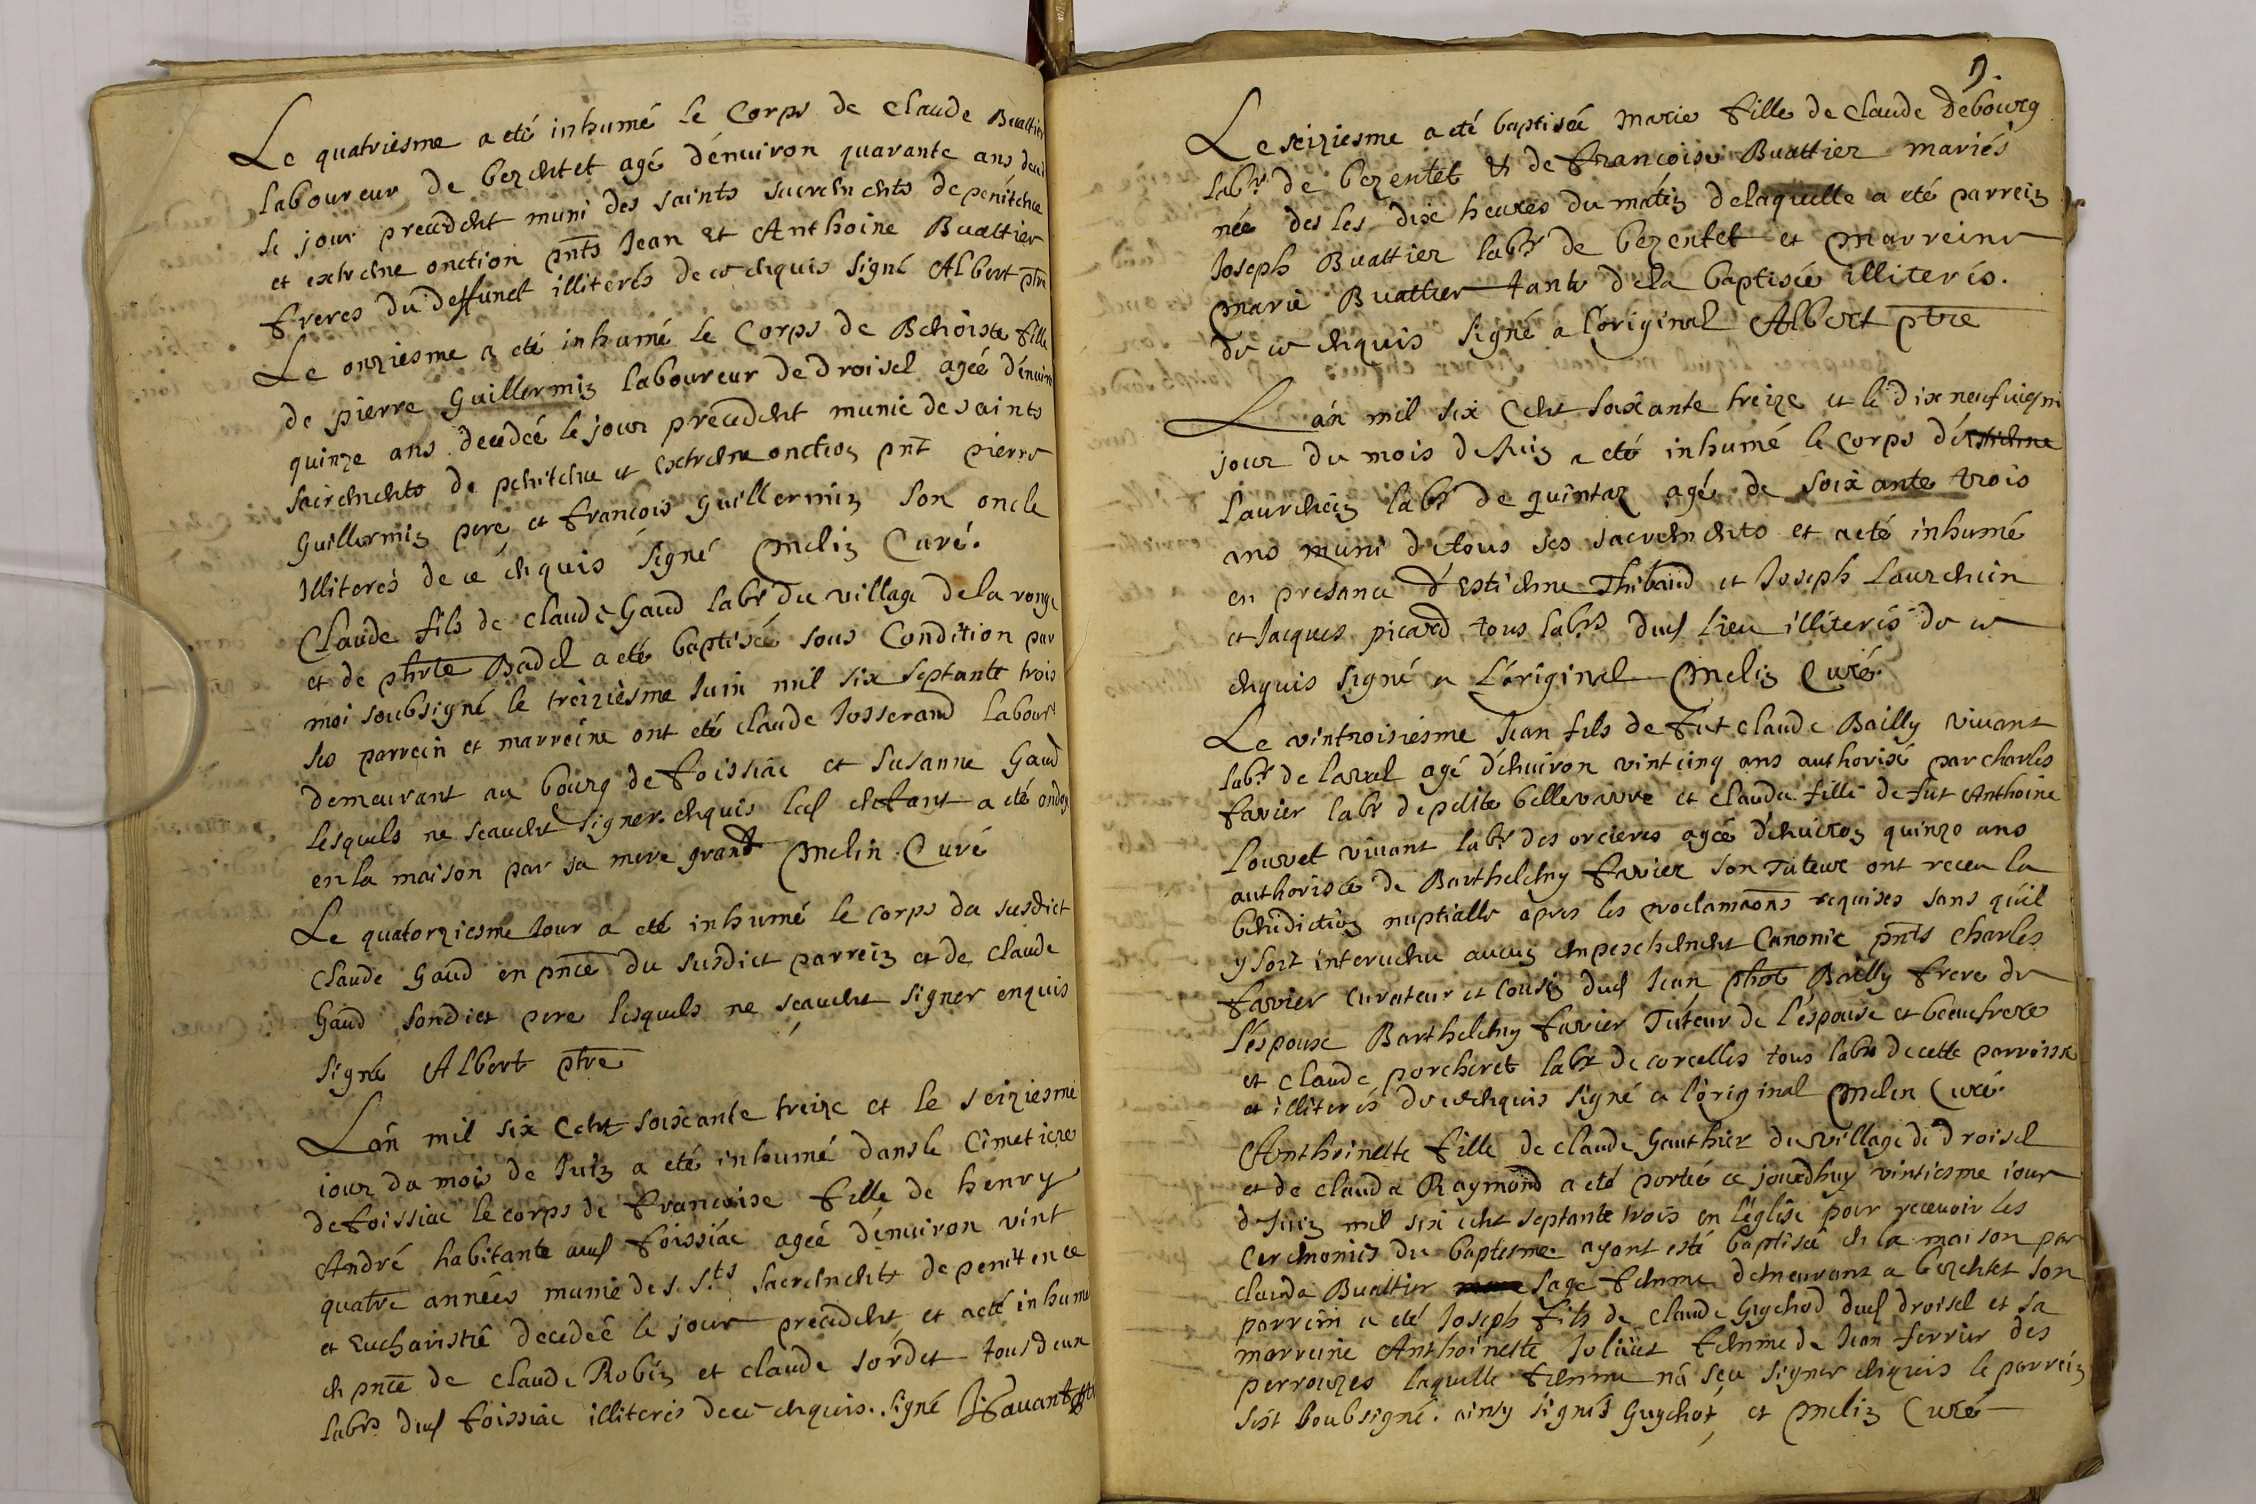 Le quatriesme a eté inhumé le Corps de Claude Buattier
laboureur de bezentet agé d'enuiron quarante ans deced
le jour precedent muni des saints sacremento de penitence
et extreme onction pnts Jean Et Anthoine Buattier
freres du deffunct illiterés de ce enquis signé Albert ptre
Le onziesme a eté inhumé le Corps de Benoiste fille
de pierre Guillermin laboureur de droisel agée d'enuiro
quinze ans decedeé le jour precedent munie de saints
sacrements de penitence et extreme onction pnt pierre
Guillermin pere et francois Guillermin son oncle
Illiterés de ce enquis signé Melin Curé.
Claude fils de claude Gaud labr du village de la ronge
et de phrte Badel a eté baptiseé sous Condition par
moi soubsigné le treiziesme Juin mil six septante trois
ses parrein et marreine ont eté claude Josserand labourr
demeurant au bourg de foissiac et susanne Gaud
lesquels ne scauent signer enquis led enfant a eté ondoy
en la maison par sa mere grand Melin Curé
Le quatorziesme Jour a eté inhumé le corps du susdict
claude Gaud en pnce du susdict parrein et de claude
Gaud sondict pere lesquels ne scauent signer enquis
signé Albert ptre
Lan mil six Cent soixante treize et le seiziesme
iour du mois de Juin a eté inhumé dans le Cimetiere
de foissiac le corps de francoise fille de henry
André habitante aud foissiac ageé d'enuiron vint
quatre anneés munie des Sts sacrements de penitence
et Eucharistie decedeé le jour precedent et a eté inhume
en pnce de claude Robin et claude sordet tous deux
labrs dud foissiac illiterés de ce enquis. signé Jauant ptre
9.
Le seiziesme a eté baptiseé Marie fille de claude debourg
labr de bezentet & de francoise Buattier mariés
neé des les dix heures du matin de laquelle a eté parrein
Joseph Buattier labr de bezentet et Marreine
Marie Buattier tante de la baptisée illiterés.
de ce enquis signé a l'original Albert ptre
Lan mil six Cent soixante treize et le dix neufuiesme
jour du mois de Juin a eté inhumé le corps d'Estienne
Laurencin labr de quintaz agé de soixante trois
ans muni de tous ses sacrements et a eté inhumé
en presance d'Estienne Thibaud et Joseph Laurencin
et Jacques picard tous labrs dud lieu illiterés de ce
enquis signé a L'original Melin Curé
Le vintroisiesme Jean fils de fut claude Bailly viuant
labr de laual agé d'enuiron vint cinq ans authorisé par charles
favier labr de petite belleuavre et claudae fille de fut Anthoine
Louvet viuant labr des orcieres ageé d'enuiron quinze ans
authoriseé de Barthelemy favier son Tuteur ont receu la
benediction nuptialle apres les proclamaons requises sans qu'il
y soit interuenu aucun enpeschement Canonic pnts charles
favier curateur et cousin dud Jean phot Bailly frere de
l'espouse Barthelemy favier Tuteur de l'espouse et beaufrere
et claude porcheret labr de corcelles tous labrs de cette parroisse
et illiterés de ce enquis signé a l'original Melin Curé
Anthoinette fille de claude Gauthier du village de droisel
et de claudae Raymond a eté porteé ce jourdhuy vintiesme iour
de Juin mil six cent septante trois en l'eglise pour receuoir les
ceremonies du baptesme ayant esté baptiseé en la maison par
clauda Buattier sage femme demeurant a bezentet son
parrein a eté Joseph fils de claude Guychod dud droisel et sa
marreine Anthoinette Joliüet femme de Jean ferrier des
perrouzes laquelle femme n'a seu signer enquis le parrein
s'est soubsigné. ainsy signés Guychot, et Melin Curé